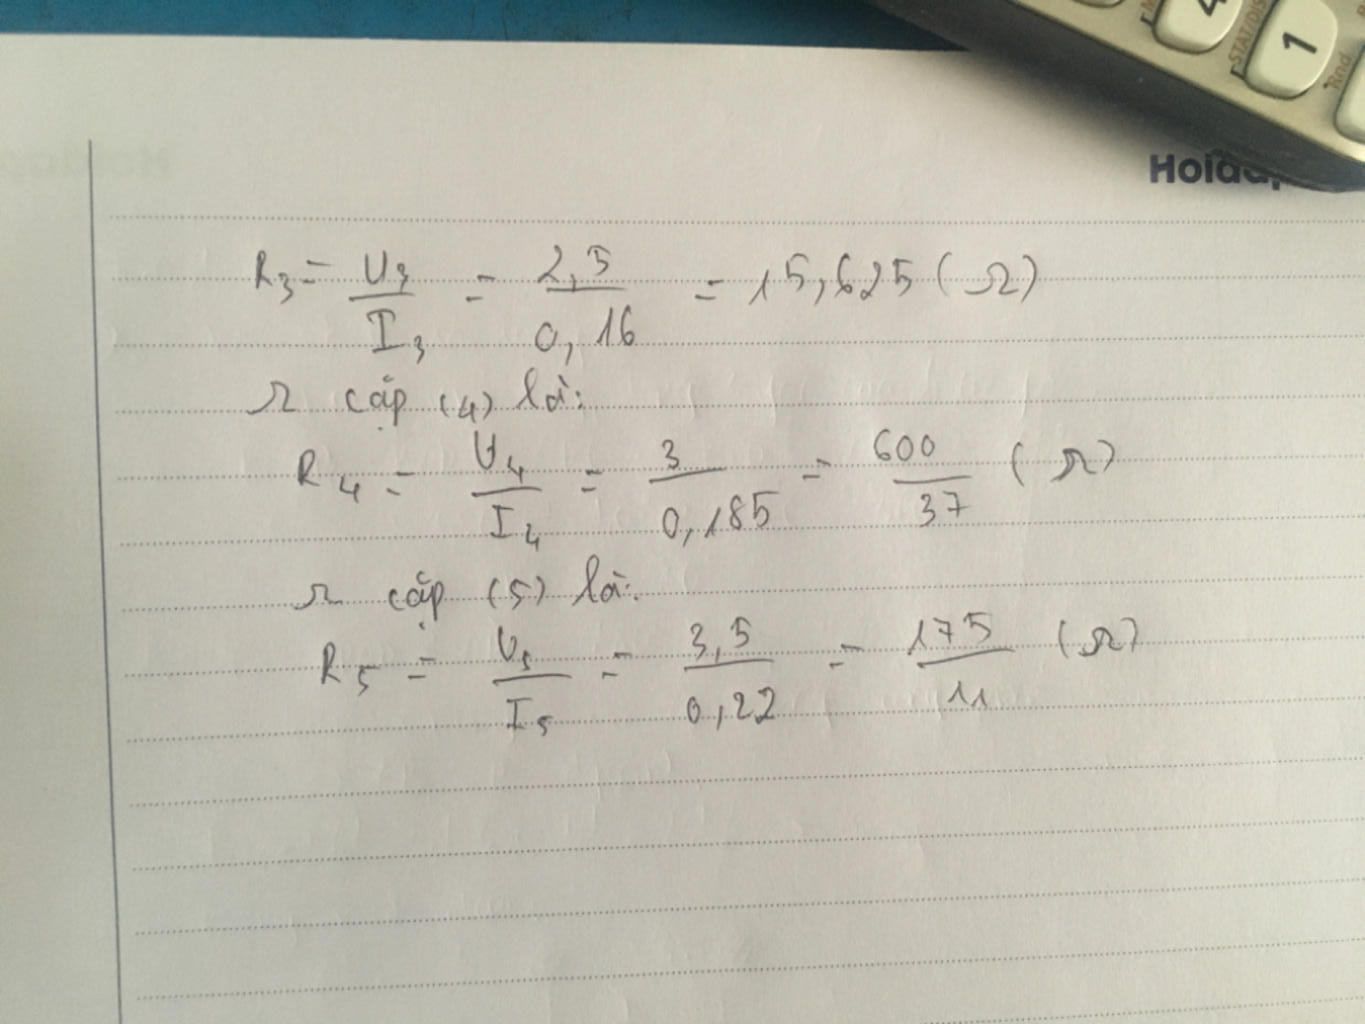 4
1
STAT/DIS
Rnd
Holda
R₃ = U₃/I₃ = 2,5/0,16 = 15,625 (Ω)
Ω cặp (4) là:
R₄ = U₄/I₄ = 3/0,185 = 600/37 (Ω)
Ω cặp (5) là:
R₅ = U₅/I₅ = 3,5/0,22 = 175/11 (Ω)